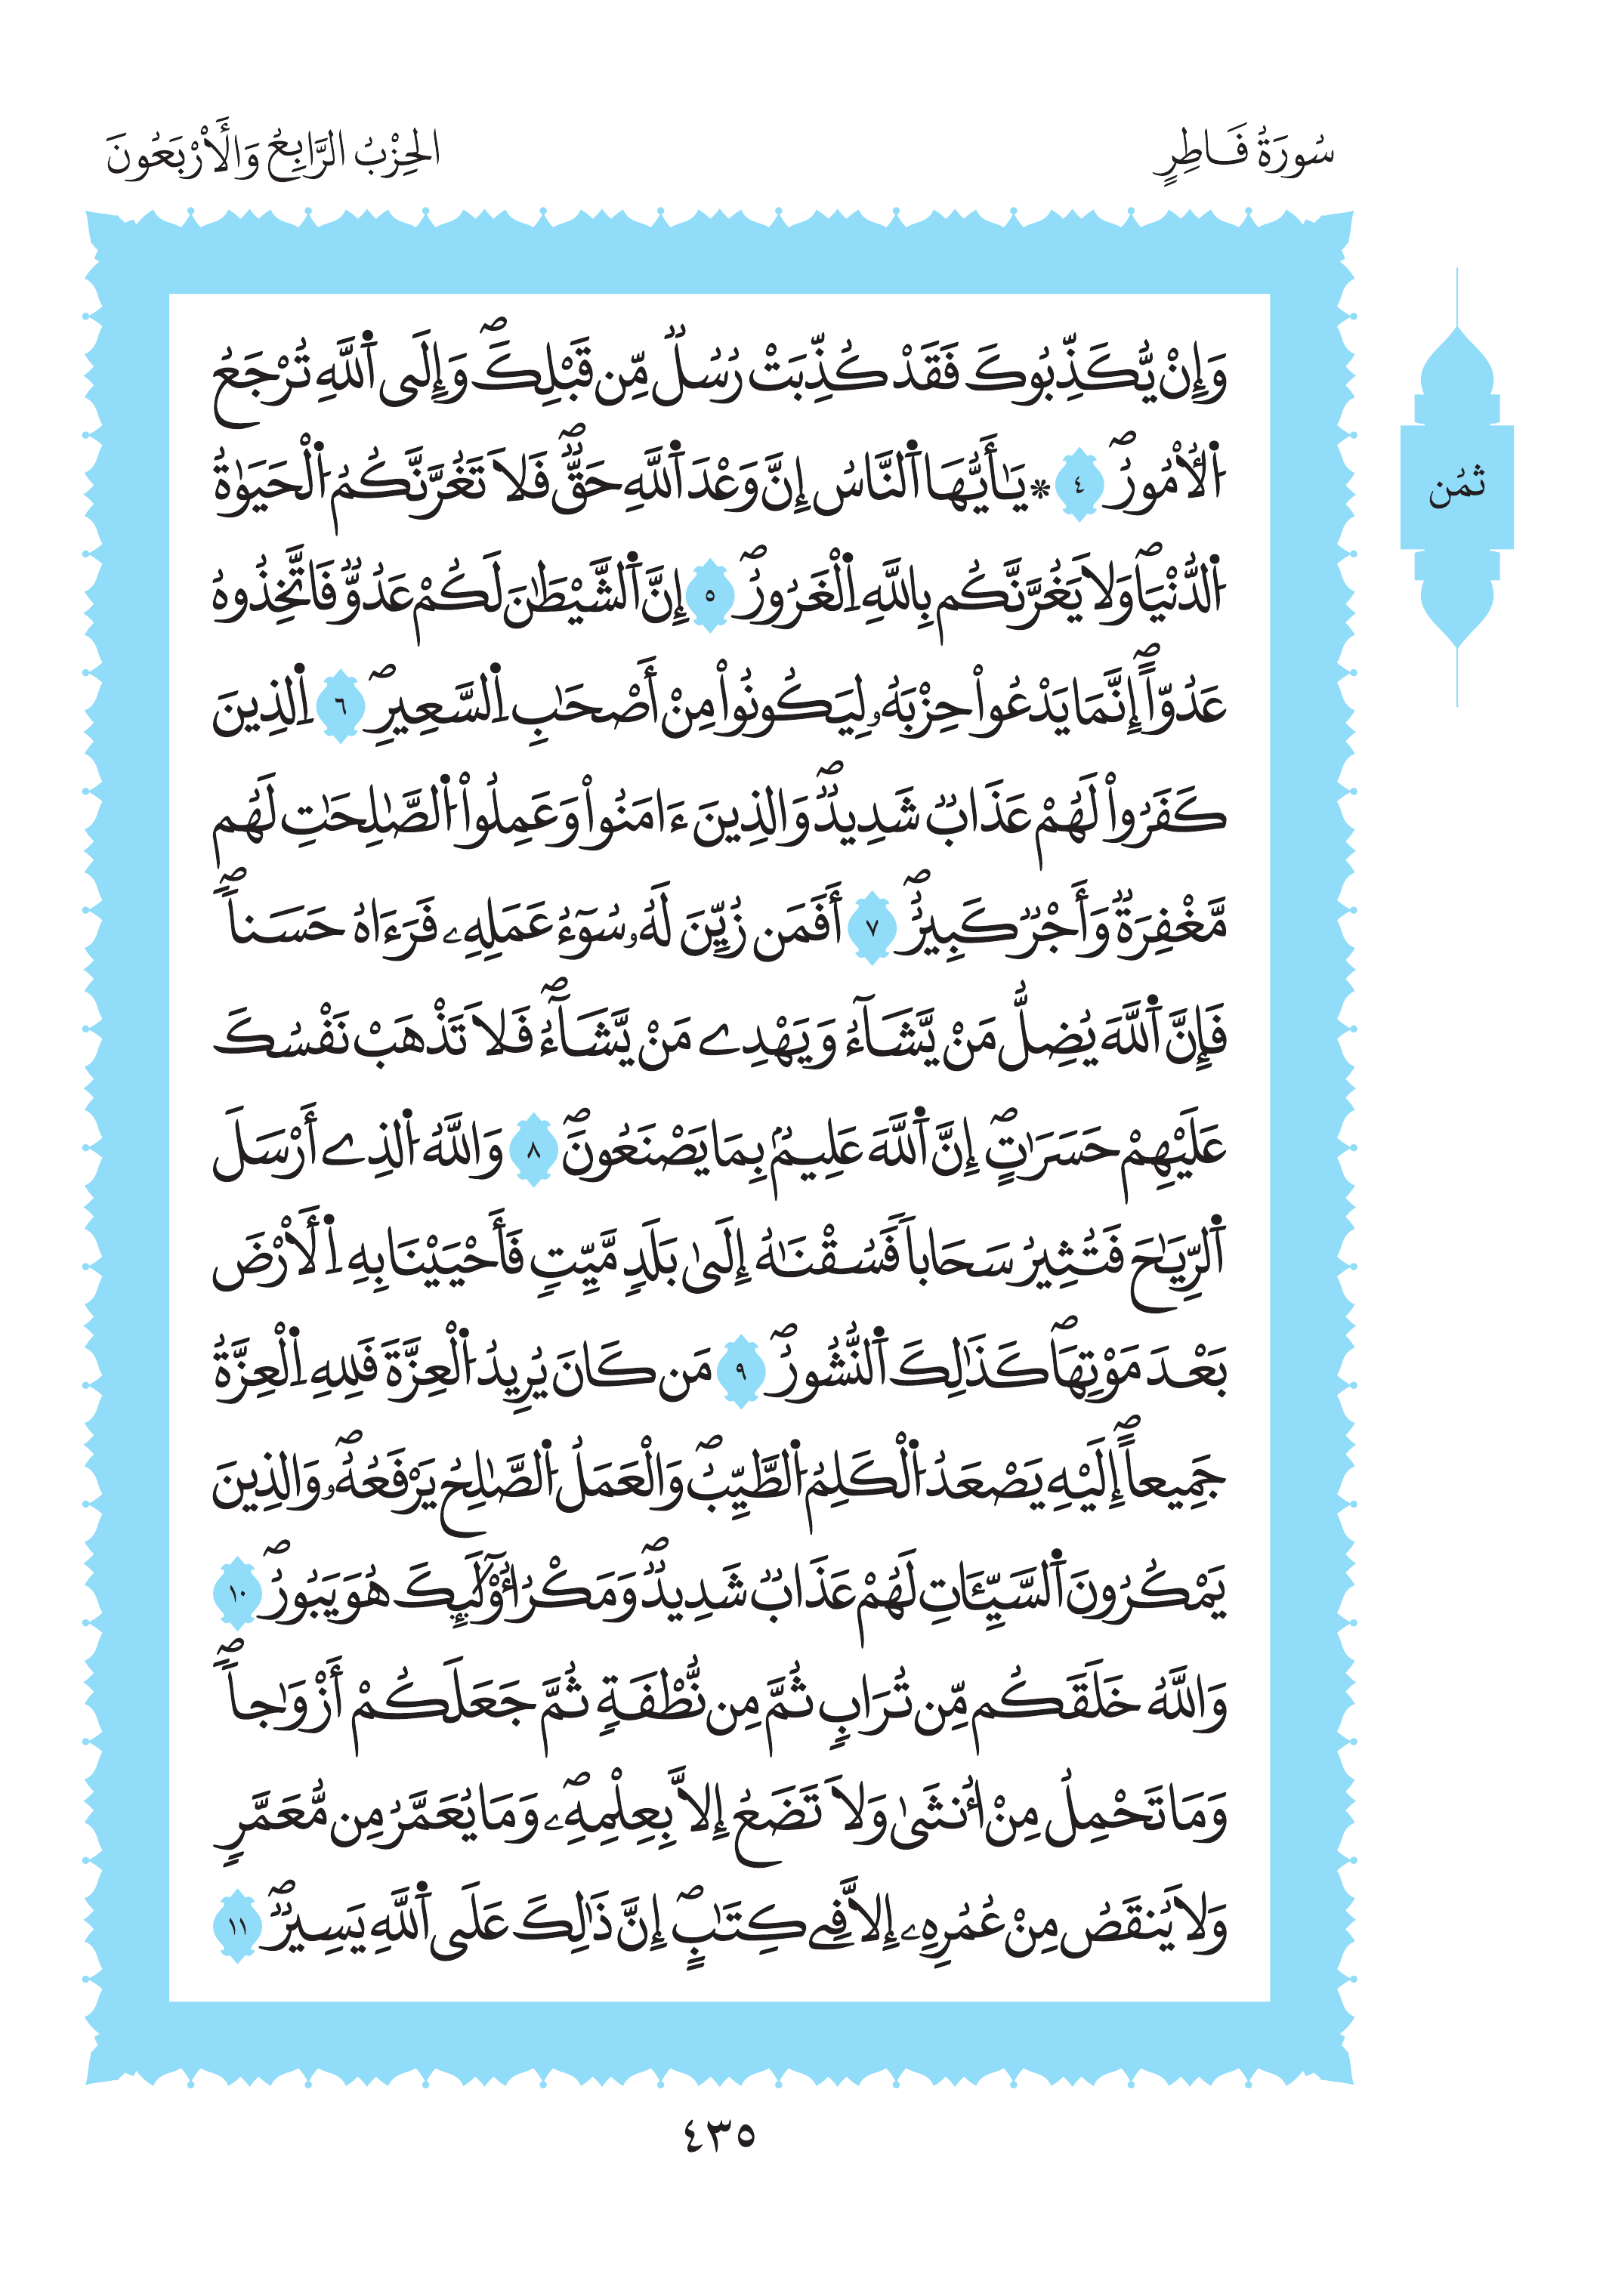 سُورَةُ فَاطِرٍ
الحِزْبُ الرَّابِعُ وَالْأَرْبَعُونَ
وَإِنْ يُّكَذِّبُوكَ فَقَدْ كُذِّبَتْ رُسُلٌ مِّن قَبْلِكَۖ وَإِلَى اَ۬للَّهِ تُرْجَعُ
اُ۬لْأُمُورُۖ ٤ * يَٰأَيُّهَا اَ۬لنَّاسُ إِنَّ وَعْدَ اَ۬للَّهِ حَقّٞۖ فَلَا تَغُرَّنَّكُمُ اُ۬لْحَيَوٰةُ
اُ۬لدُّنْيَاۖ وَلَا يَغُرَّنَّكُم بِاللَّهِ اِ۬لْغَرُورُۖ ٥ إِنَّ اَ۬لشَّيْطَٰنَ لَكُمْ عَدُوّٞ فَاتَّخِذُوهُ
عَدُوّاًۖ إِنَّمَا يَدْعُواْ حِزْبَهُۥ لِيَكُونُواْ مِنْ أَصْحَٰبِ اِ۬لسَّعِيرِۖ ٦ اِ۬لذِينَ
كَفَرُواْ لَهُمْ عَذَابٞ شَدِيدٞۖ وَالذِينَ ءَامَنُواْ وَعَمِلُواْ اُ۬لصَّٰلِحَٰتِ لَهُم
مَّغْفِرَةٞ وَأَجْرٞ كَبِيرٌۖ ٧ أَفَمَن زُيِّنَ لَهُۥ سُوٓءُ عَمَلِهِۦ فَرَءَاهُ حَسَناٗۖ
فَإِنَّ اَ۬للَّهَ يُضِلُّ مَنْ يَّشَآءُ وَيَهْدِے مَنْ يَّشَآءُۖ فَلَا تَذْهَبْ نَفْسُكَ
عَلَيْهِمْ حَسَرَٰتٍۖ إِنَّ اَ۬للَّهَ عَلِيمُۢ بِمَا يَصْنَعُونَۖ ٨ وَاللَّهُ اُ۬لذِے أَرْسَلَ
اَ۬لرِّيَٰحَ فَتُثِيرُ سَحَاباٗ فَسُقْنَٰهُ إِلَىٰ بَلَدٖ مَّيِّتٖ فَأَحْيَيْنَا بِهِ اِ۬لْأَرْضَ
بَعْدَ مَوْتِهَاۖ كَذَٰلِكَ اَ۬لنُّشُورُۖ ٩ مَن كَانَ يُرِيدُ اُ۬لْعِزَّةَ فَلِلهِ اِ۬لْعِزَّةُ
جَمِيعاًۖ إِلَيْهِ يَصْعَدُ اُ۬لْكَلِمُ اُ۬لطَّيِّبُۖ وَالْعَمَلُ اُ۬لصَّٰلِحُ يَرْفَعُهُۥۖ وَالذِينَ
يَمْكُرُونَ اَ۬لسَّيِّـَٔاتِ لَهُمْ عَذَابٞ شَدِيدٞۖ وَمَكْرُ أُوْلَٰٓئِكَ هُوَ يَبُورُۖ ١٠
وَاللَّهُ خَلَقَكُم مِّن تُرَابٖ ثُمَّ مِن نُّطْفَةٖ ثُمَّ جَعَلَكُمْ أَزْوَٰجاٗۖ
وَمَا تَحْمِلُ مِنْ أُنثَىٰ وَلَا تَضَعُ إِلَّا بِعِلْمِهِۦۖ وَمَا يُعَمَّرُ مِن مُّعَمَّرٖ
وَلَا يُنقَصُ مِنْ عُمُرِهِۦ إِلَّا فِے كِتَٰبٍۖ إِنَّ ذَٰلِكَ عَلَى اَ۬للَّهِ يَسِيرٞۖ ١١
ثُمُن
٤٣٥